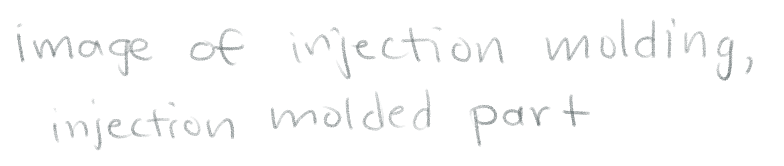 image of injection molding,
injection molded part